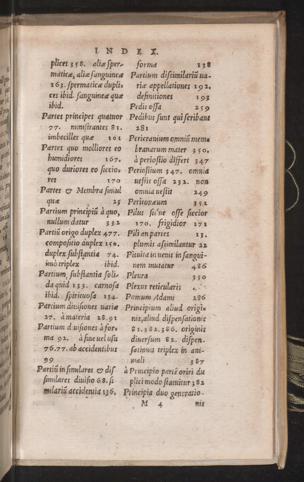 INDEX.
plices 158. aliæ sper-
maticæ, aliæ sanguineæ
163. spermaticæ dupli-
ces ibid. sanguineæ quæ
ibid.
Partes principes quatuor
77. ministrantes 81.
imbecilles quæ 161
Partes quo molliores eo
humidiores 167.
quo duriores eo sccio-
res 170
Partes & Membra simul
quæ 25
Partium principiū à quo,
nullum datur 382
Partiū origo duplex 477.
compositio duplex 150.
duplex substantia 74.
imò triplex ibid.
Partium, substantia soli-
da quid 133. carnosa
ibid. spirituosa 134.
Partium diuisiones variæ
27. à materia 28.31
Partium diuisiones à for-
ma 92. à sine vel usu
76.77. ab accidentibus
99
Partiū in similares & dis
similares diuisio 68. si
milariū accidentia 136.
forma 138
Partium dissimilariū va-
riæ appellationes 192.
definitiones 193
Pedis ossa 259
Pedibus sunt qui scribant
281
Pericranium omniū mem
branarum mater 350.
à periostio differt 347
Periostium 347. omnia
uestit ossa 232. non
omnia uestit 249
Peritonæum 352
Pilus sic'ne osse siccior
170. frigidior 171
Pili an partes 13.
plumis assimilantur 22
Pituita in uenis in sangui-
nem mutatur 486
Pleura 350
Plexus reticularis
Pomum Adami 286
Principium aliud origi-
nis, aliud dispensationis
81.382.386. originis
diuersum 82. dispen-
sationis triplex in ani-
mali 387
à Principio partē oriri du
plici modo statuitur 382
Principia duo generatio-
M 4 nis